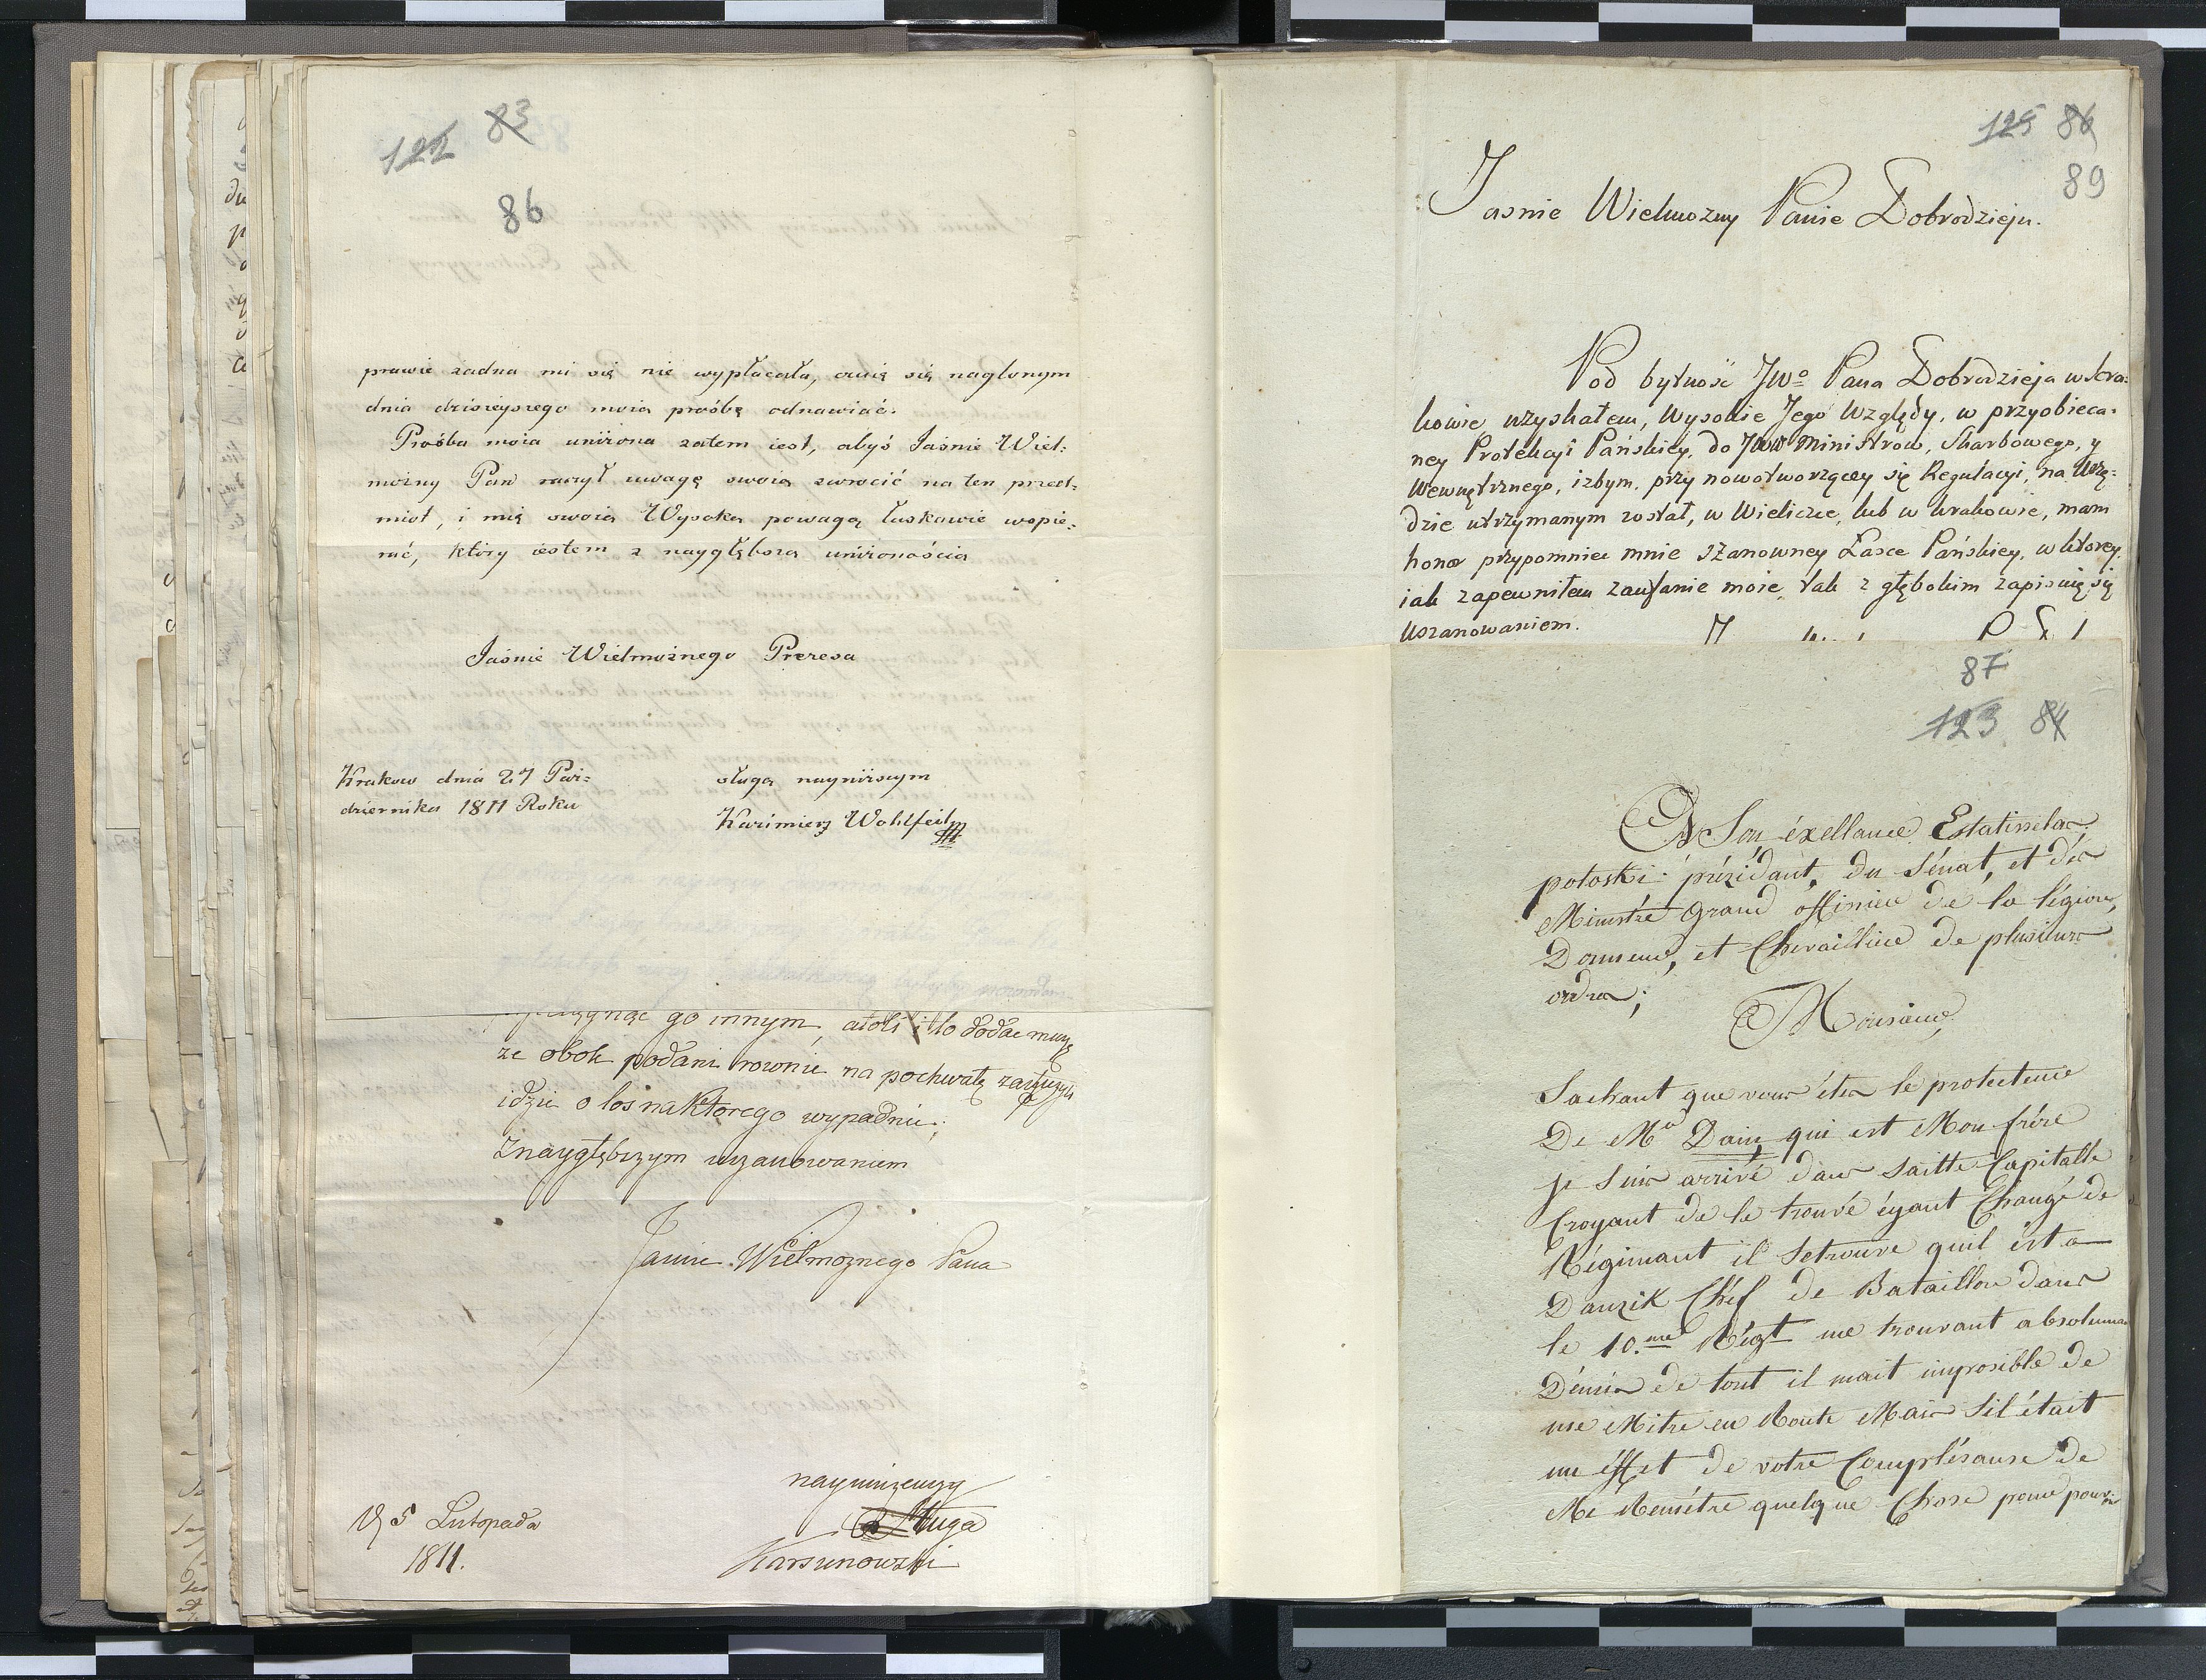 122 83
86
prawie żadna mi się nie wypłacała, czuię się naglonym
dnia dzisieyszego moią prośbę odnawiać.
Prośba moia uniżona zatem iest, abyś Jaśnie Wiel:
możny Pan raczył uwagę swoią zwrócić na ten przed:
miot, i mię swoią Wysoką powagą łaskawie wspie:
rać, który iestem z naygłębszą uniżonością
Jaśnie Wielmożnego Prezesa
Krakow dnia 27 Paź:
dziernika 1811 Roku
sługą nayniższym
Kazimierz Wohlfeil
go innym, atoli i to dodac muszę
ze obok podani rownie na pochwałę zasłużyli
idzie o los na ktorego wypadnie;
z naygłębszym uszanowaniem
Jasnie Wielmoznego Pana
nayniższy
Sługa
Karsunowski
D 5 Listopada
1811.
125 86
89
Jasnie Wielmozny Panie Dobrodzieju.
Pod bytność JWo Pana Dobrodzieja w Kra:
kowie uzyskałem, Wysokie Jego Względy, w przyobieca:
ney Protekcyi Pańskiey, do JWW Ministrów, Skarbowego, y
Wewnętrznego, izbym, przy nowotworzącey się Regulacyi, na Urzę:
dzie utrzymanym został, w Wieliczce, lub w Krakowie, mam
honor przypomniec mnie Szanowney Łasce Pańskiey, w ktorey,
iak zapewniłem zaufanie moie, tak z głębokim zapisuię się
Uszanowaniem.
87
123 84
A Son éxellance Estatinselas
potoski présidant, du Sénat, et dés
Ministre Grand officier de la légion,
Donneur, et Chevaillier de plusieurs
ordres;
Monsieur,
Sachant que vous étes le protecteur
De Mr Dain, qui est Mon frére
je suis arrivé dans saitte Capitalle
Croyant de le trouvé éyant Changé de
Régimant il setrouve quil ést a
Danzik Chéf de Bataillon dans
le 10.me Régt me trouvant absolumen
Dénüé de tout il mait imposible de
me Mitre en Route Mais sil était
un éffet de votre Complésanse de
Me Remétre quelque Chose pour pouvoir